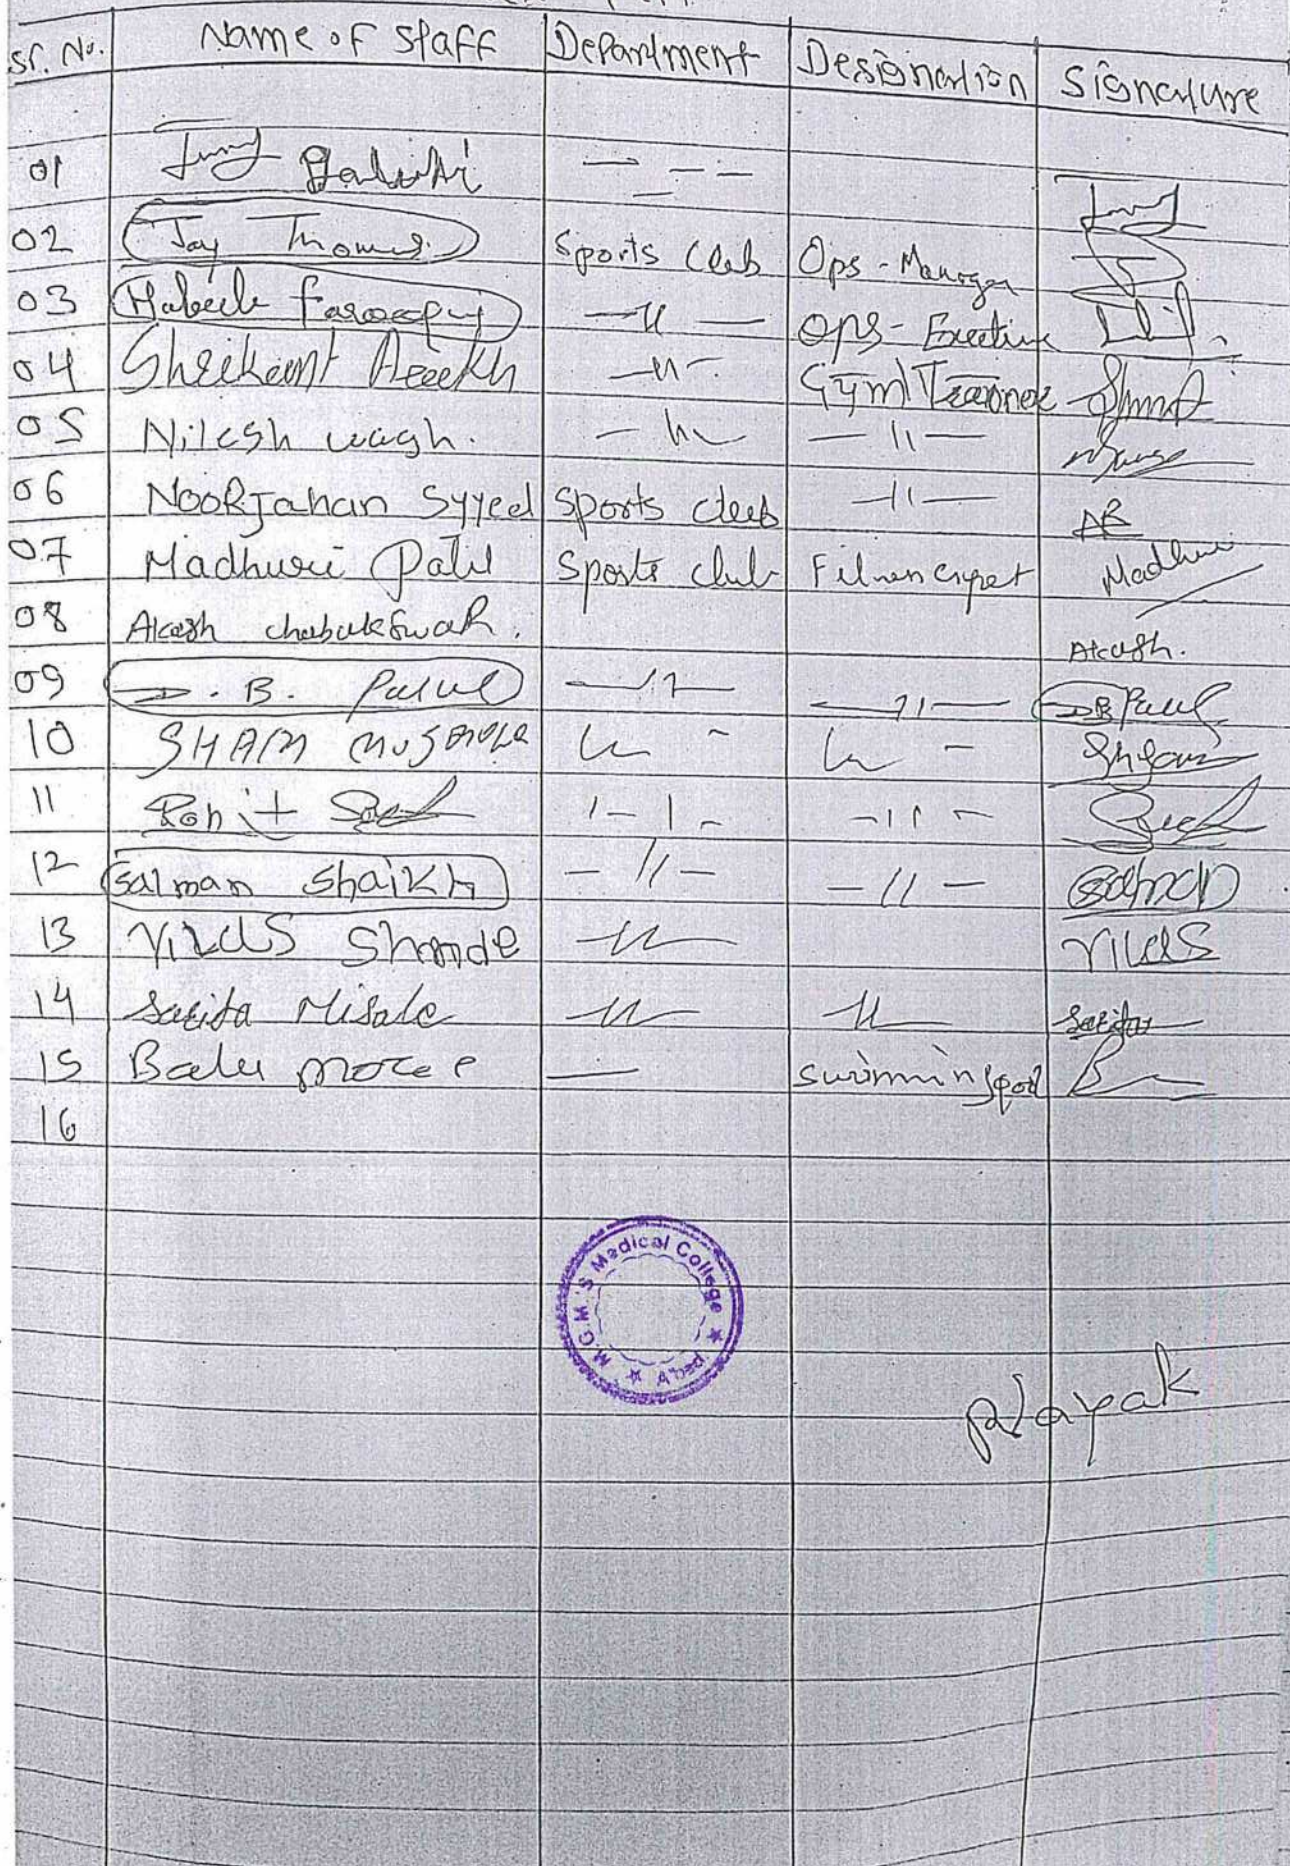 Sr. No. Name of Staff Department Designation Signature
01 — - - —
02 Jay Thomas Sports Club Ops - Manager
03 Habeeb Farooqui —〃— Ops - Executive
04 Shrikant —〃— Gym Trainer
05 Nilesh wagh. —〃— —〃—
06 NooRJahan Syyed Sports club —〃— AB
07 Madhuri Patil Sports club Madhuri
08 Akash chabukswaR. Akash.
09 D. B. —〃— —〃— DB
10 SHAM 〃 - 〃 - Shyam
11 Rohit —〃— —〃—
12 Salman Shaikh —〃— —〃— Salman
13 Vilas Shinde —〃— Vilas
14 Sarita Misale —〃— —〃— Sarita
15 Balu more — swimming pool B
16
M.G.M.'S Medical College ★ A'bad ★